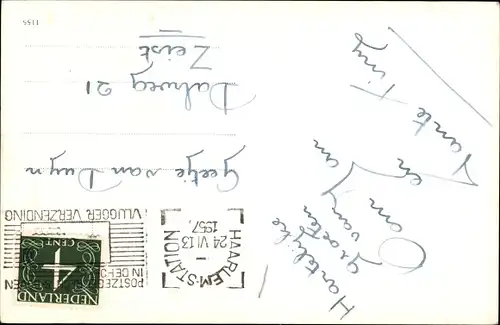 Geetje van Duyn
Dalweg 21
Zeist
Hartelijke
groeten
van
Om Jan
en
Tante Tiny
HAARLEM-STATION
24 VI 13
1957
POSTZEGELS
IN DE
VLUGGER VERZENDING
NEDERLAND
4
CENT
1155